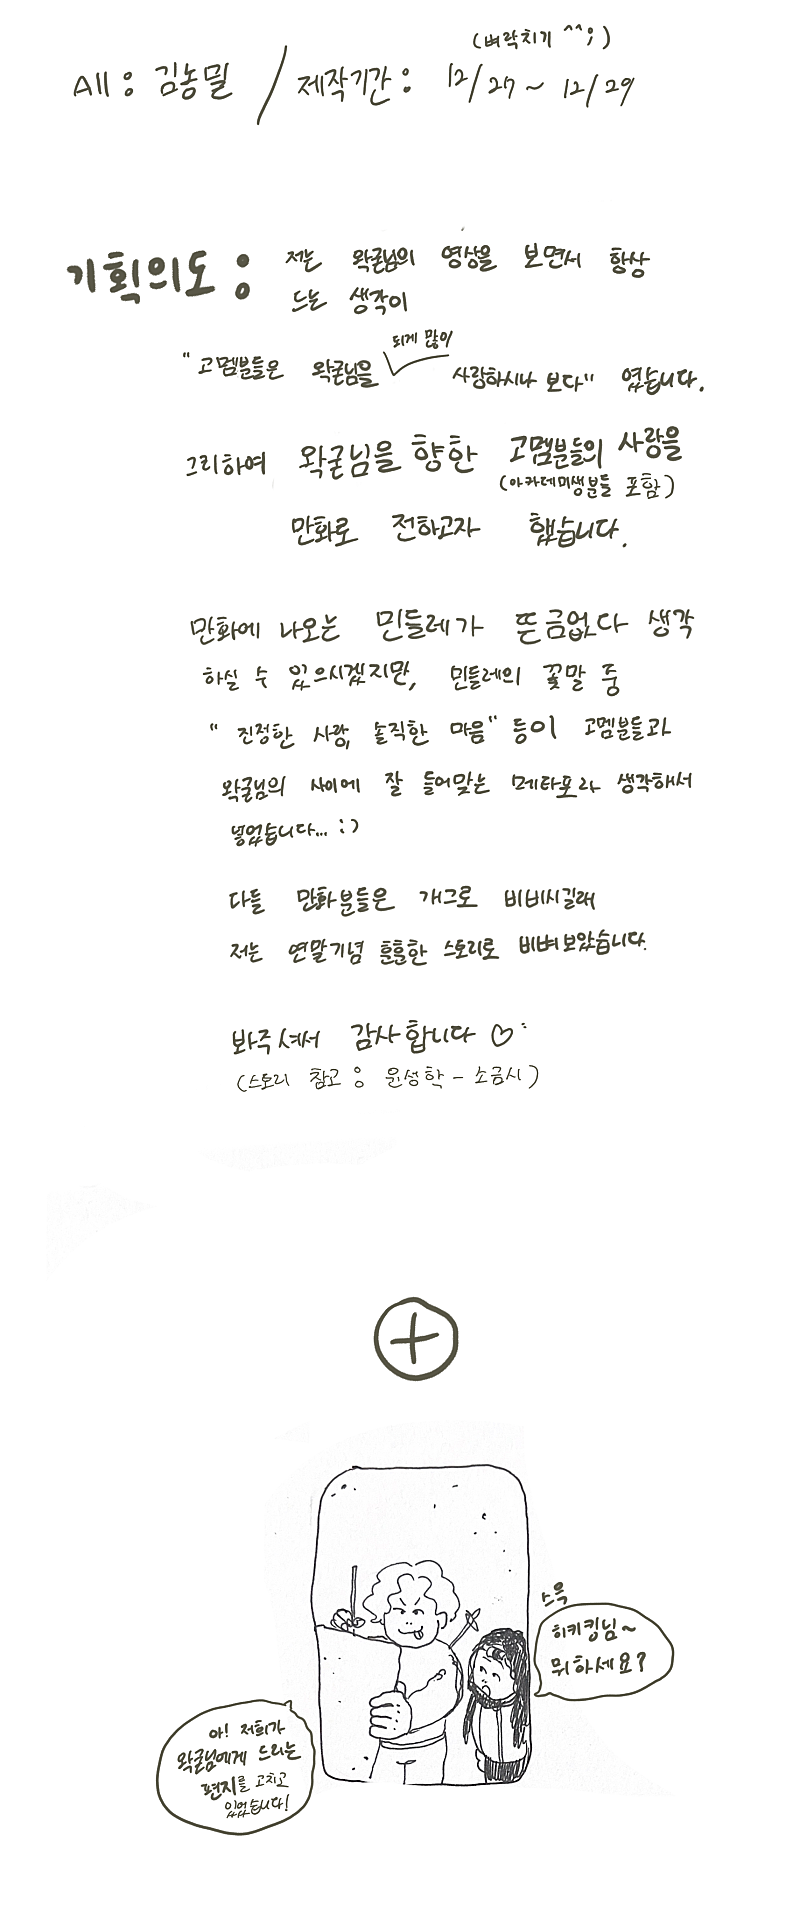 (벼락치기 ^^;)
All : 김농밀 / 제작기간 : 12/27 ~ 12/29
기획의도 : 저는 왁굳님의 영상을 보면서 항상
드는 생각이
되게 많이
"고멤분들은 왁굳님을 사랑하시나 보다" 였습니다.
그리하여 왁굳님을 향한 고멤분들의 사랑을
(아카데미생분들 포함)
만화로 전하고자 했습니다.
만화에 나오는 민들레가 뜬금없다 생각
하실 수 있으시겠지만, 민들레의 꽃말 중
"진정한 사랑, 솔직한 마음" 등이 고멤분들과
왁굳님의 사이에 잘 들어맞는 메타포라 생각해서
넣었습니다... :)
다들 만화분들은 개그로 비비시길래
저는 연말기념 훈훈한 스토리로 비벼보았습니다.
봐주셔서 감사합니다 ♡
(스토리 참고 : 윤성학 - 소금시)
+
스윽
히키킹님~
뭐하세요?
아! 저희가
왁굳님에게 드리는
편지를 고치고
있었습니다!